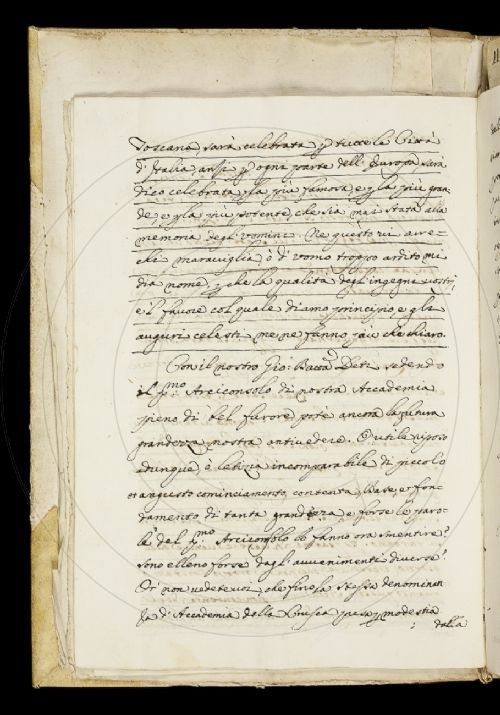 Toscana, sarà celebrata p tutte le Città
d'Italia, anzi p ogni parte dell'Europa, sarà
dico celebrata p la più famosa, e p la più gran-
de, e p la più potente, che sia mai stata alla
memoria degl'uomini. Ne questo vi arre-
chi maraviglia, ò d'uomo troppo ardito mi
dia nome, che la qualità degl'ingegni vostri,
e'l favore col quale diamo principio e gli
auguri celesti me ne fanno più che chiaro.
Con il nostro Gio: Batta Deti sedendo
il pmo: Arciconsolo di nostra Accademia
pieno di bel furore potè ancora la futura
grandezza nostra antivedere. O utile riposo
adunque, è letizia incomparabile di piccolo
et angusto cominciamento, contenta, base, e fon-
damento di tanta grandezza e forse le paro-
le del pmo Arciconsolo lo fanno ora smentire?
sono elleno forse dagl'avvenimenti diverse?
O' non vedete voi, che fino la stessa denomina
za d'Accademia della Crusca presa p modestia
dalla